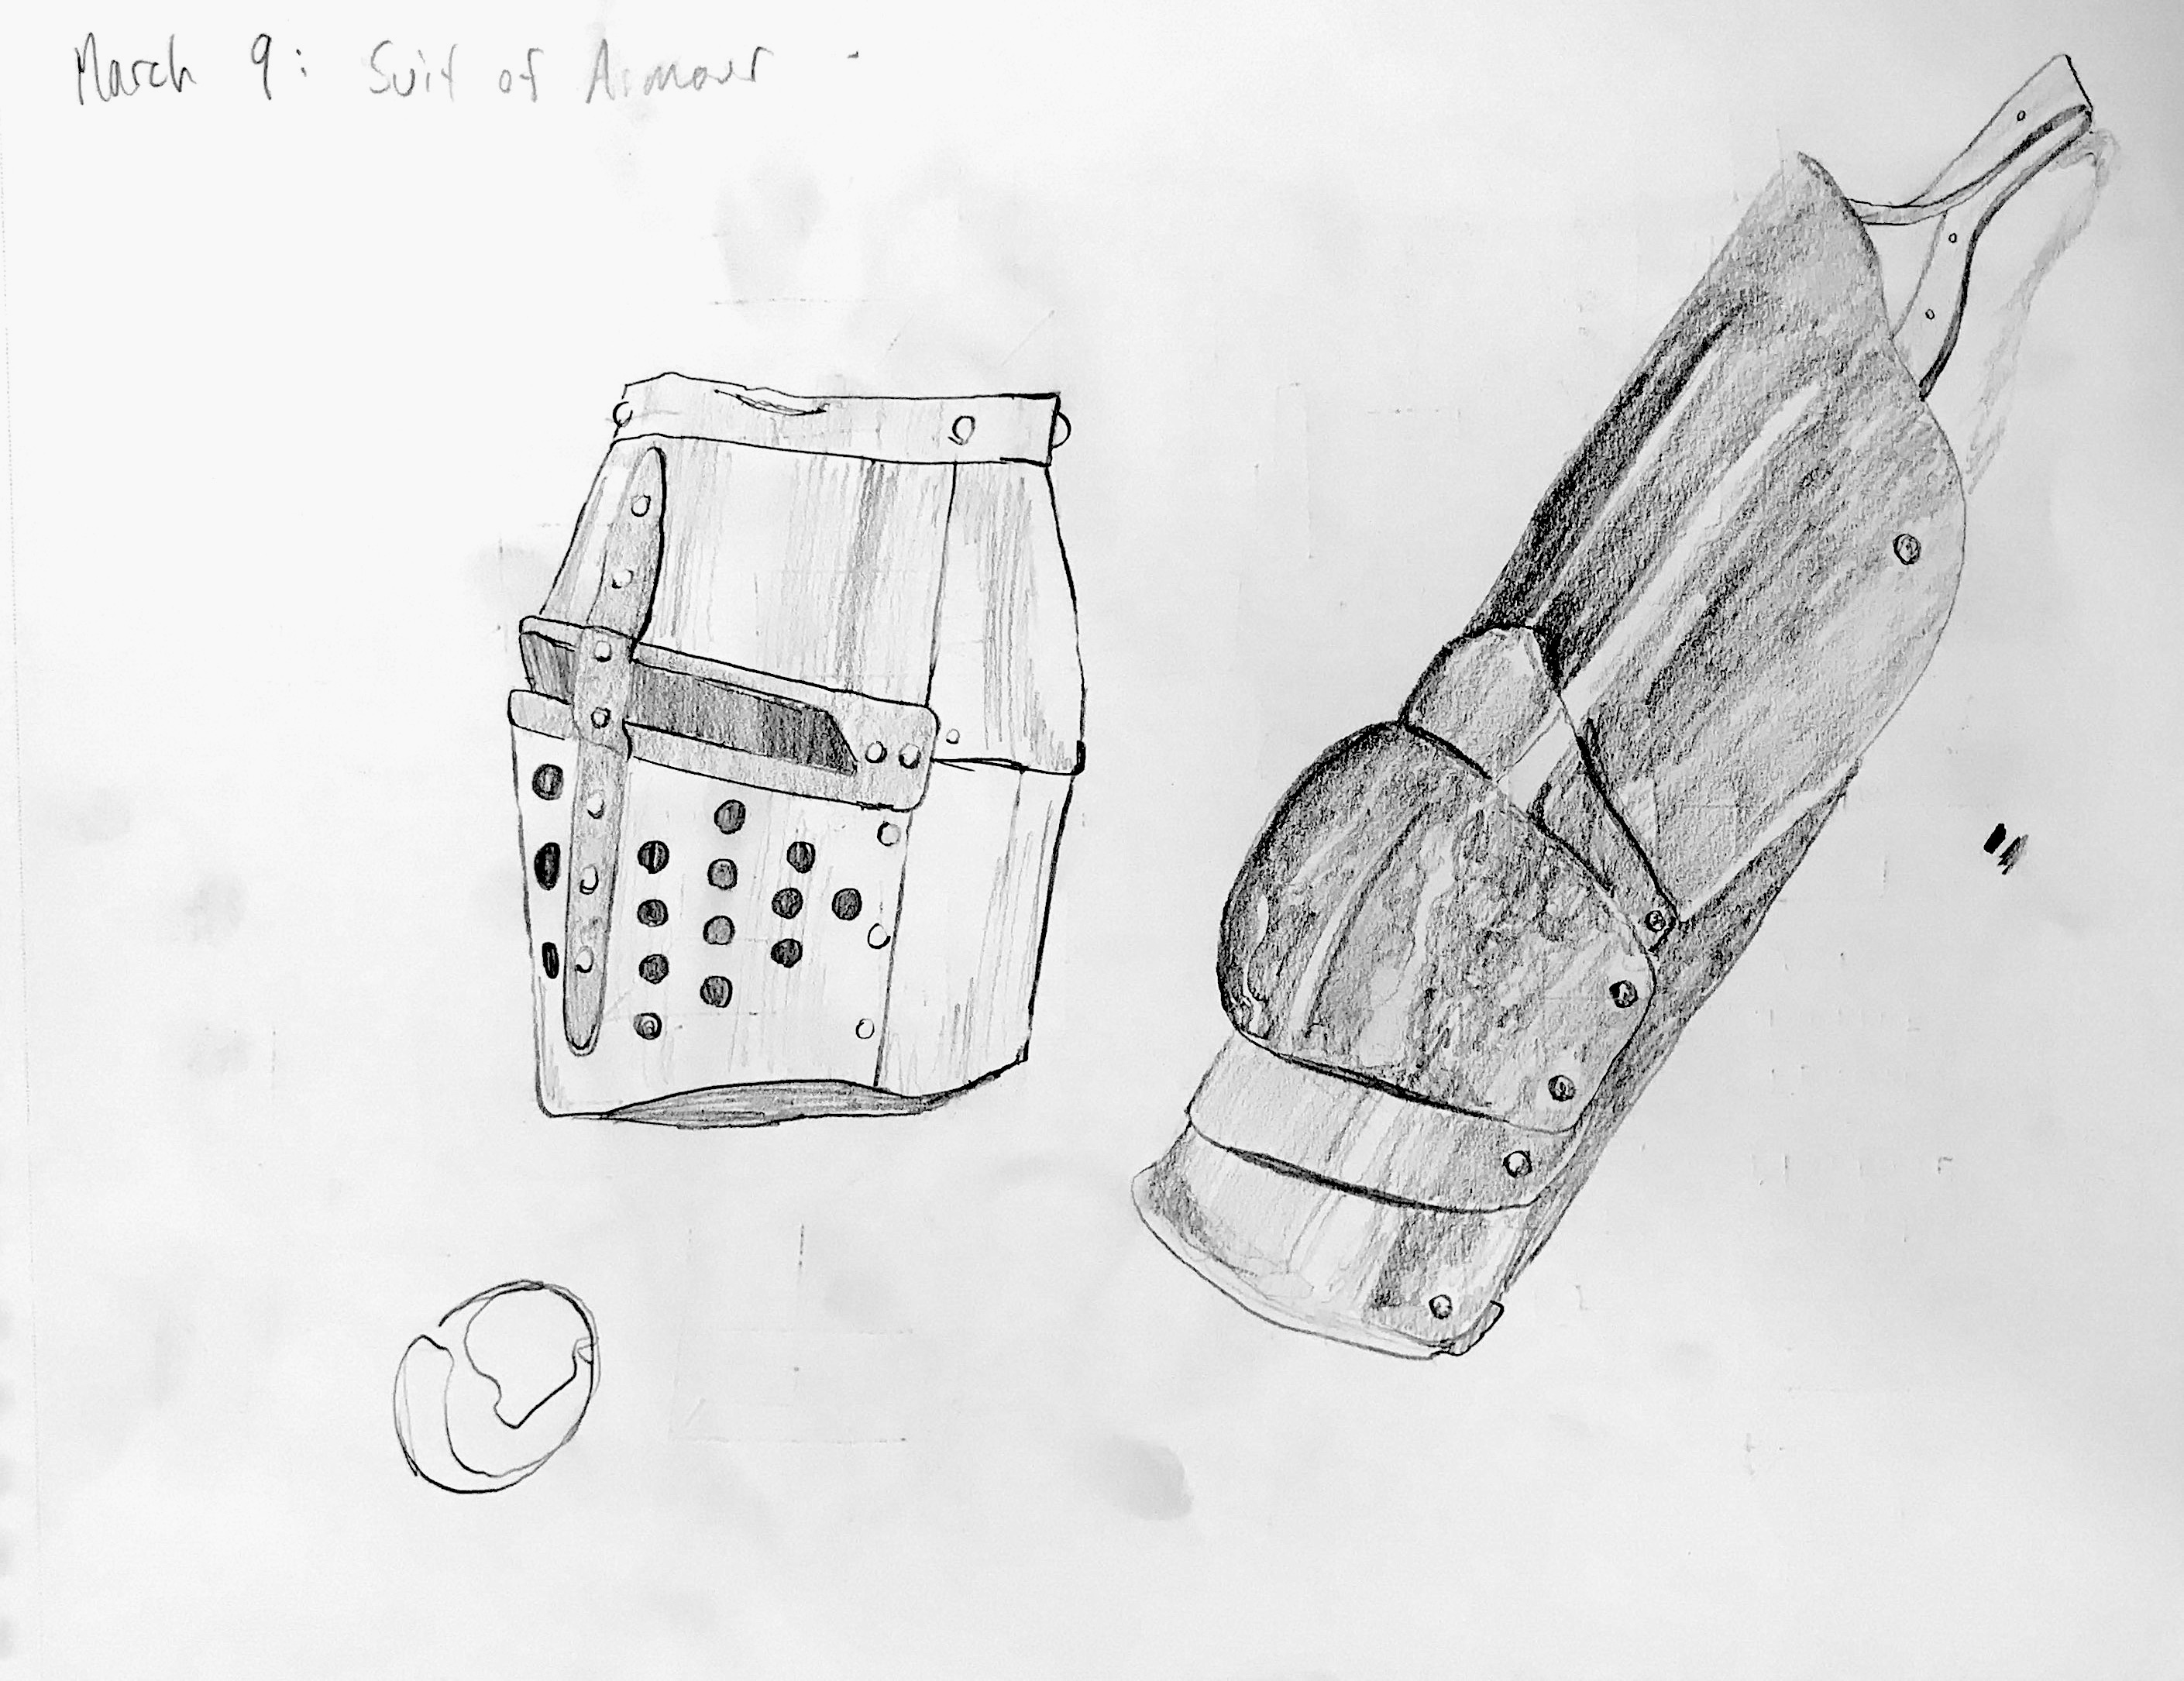 March 9: Suit of Armour